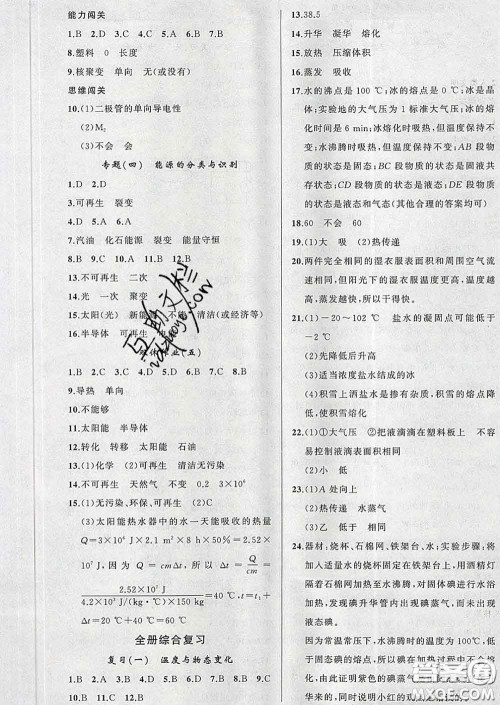 能力闯关
1.B 2.D 3.C 4.D 5.A 6.B 7.D
8.塑料 0 长度
9.核聚变 单向 无(或没有)
思维闯关
10.(1)二极管的单向导电性
(2)M₂
(3)不会 会
专题(四) 能源的分类与识别
1.D 2.D
3.可再生 裂变
4.D 5.A 6.A
7.汽油 化石能源 裂变 能量守恒
8.D 9.B 10.A 11.B 12.B
13.不可再生 二次
14.光 一次 聚变
15.太阳(光) 新能源 不能 清洁(或经济等)
16.半导体 可再生
(五)
1.B 2.D 3.C 4.B 5.A 6.C 7.B 8.C
9.导热 单向
10.不能够
11.太阳能 半导体
12.转化 转移 太阳能 石油
13.(1)化学 (2)可再生 清洁无污染
14.不可再生 可再生 0.2 3×10⁶
15.(1)无污染、环保、可再生 (2)
(3)太阳能热水器中的水一天能吸收的热量
Q=3×10⁷ J×2.1 m²×8 h×50%=2.52×
10⁷ J,因为 Q=cmΔt,所以 Δt=Q/cm=
2.52×10⁷ J/(4.2×10³ J/(kg·℃)×150 kg)=40 ℃,t=t₁+
Δt=20 ℃+40 ℃=60 ℃
全册综合复习
复习(一) 温度与物态变化
1.B 2.C 3.D 4.B 5.C 6.D 7.B 8.C 9.A
10.B 11.C 12.B
13.38.5
14.升华 凝华 熔化
15.放热 压缩体积
16.蒸发 吸收
17.水的沸点是 100 ℃;冰的熔点是 0 ℃;冰是晶
体;实验地的大气压为 1 标准大气压;冰的熔
化时间是 6 min;冰熔化时吸热,但温度保持不
变;水沸腾时吸热,但温度保持不变;AB 段物
质的状态是固态;BC 段物质的状态是固液共
存状态;CD 段物质的状态是液态;DE 段物质的
状态是液态和气态(其他合理的答案均可)
18.60 不会 60
19.(1)大 吸 (2)热传递
20.两件完全相同的湿衣服表面积和周围空气流
速相同,但阳光下的湿衣服温度更高,温度越
高,蒸发越快。
21.(1)-20～102 ℃ 盐水的凝固点可能低于
-2 ℃
(2)沸点升高
(3)适当浓度盐水结成的冰
(4)积雪上洒盐水是掺杂质,积雪的熔点降
低,使积雪熔化
22.(1)①大气压 ②把液滴滴在塑料板上 不容
易控制液滴表面积相同
(2)小 低
23.(1)A 处向上
(2)热传递 水蒸气
(3)乙 低于
24.器材:烧杯、石棉网、铁架台、水;实验步骤:将
加入适量水的烧杯固定在铁架台上,用酒精灯
隔着石棉网加热至水沸腾,对固体碘进行水浴
加热,发现碘升华管内出现碘蒸气而未出现
液态碘。
因为常温常压下,水沸腾时的温度为 100 ℃,
低于固态碘的熔点,所以碘在加热过程中不会熔
化,由此证明紫色的碘蒸气是由固态碘直接升